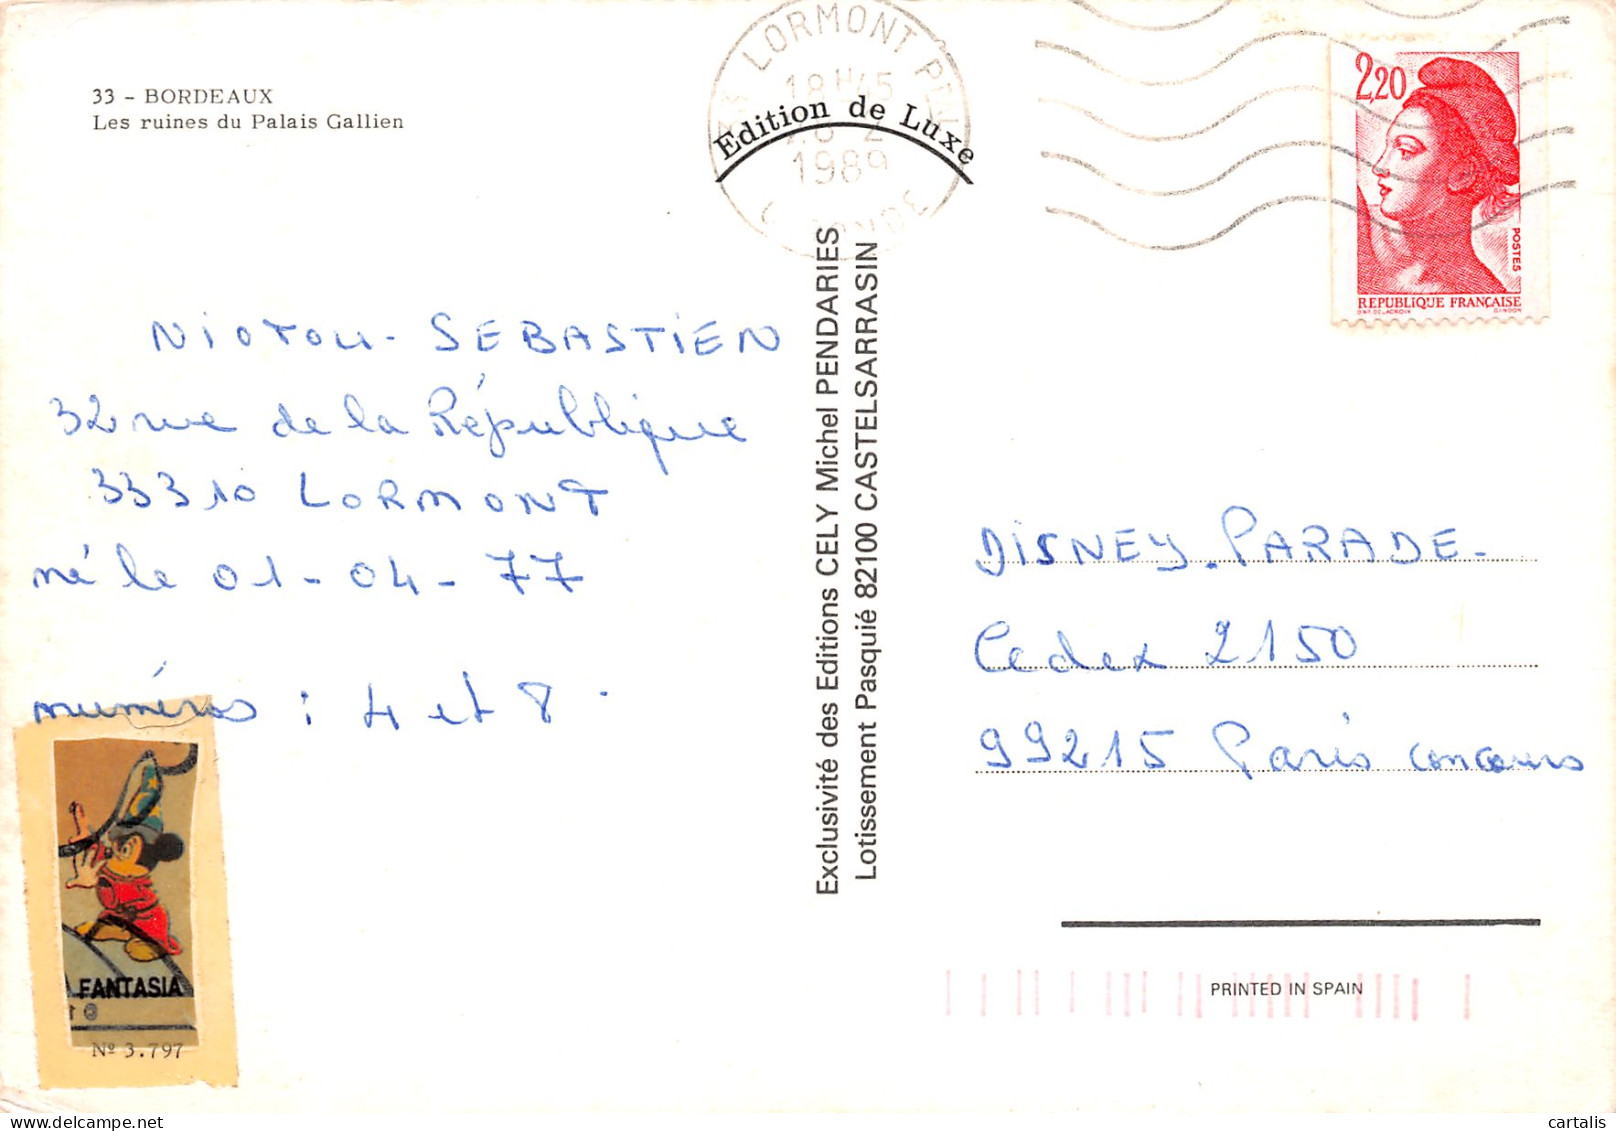 33 - BORDEAUX
Les ruines du Palais Gallien
NIOTOU - SEBASTIEN
32 rue de la République
33310 LORMONT
né le 01-04-77
numéros : 4 et 8.
FANTASIA
Nº 3.797
LORMONT
18H45
1989
Edition de Luxe
Exclusivité des Editions CELY Michel PENDARIES
Lotissement Pasquié 82100 CASTELSARRASIN
2,20
POSTES
REPUBLIQUE FRANÇAISE
GANDON
DISNEY. PARADE.
Cedex 2150
99215 Paris concours
PRINTED IN SPAIN
cartalis